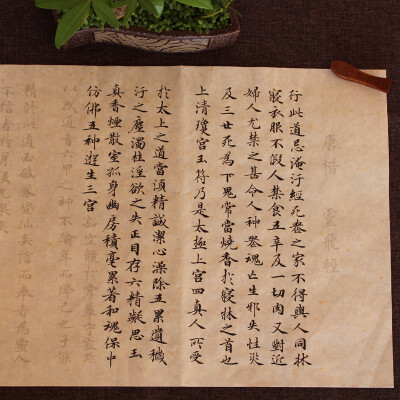 行此道忌淹汙經死喪之家不得與人同牀
寢衣服不假人禁食五辛及一切肉又對近
婦人尤禁之甚令人神喪魂亡生邪失性災
及三世死為下鬼常當燒香於寢牀之首也
上清瓊宮玉符乃是太極上宮四真人所受
於太上之道當須精誠潔心澡除五累遺穢
汙之塵濁杜淫欲之失正目存六精凝思玉
真香煙散室孤身幽房積毫累著和魂保中
仿佛五神遊生三宮